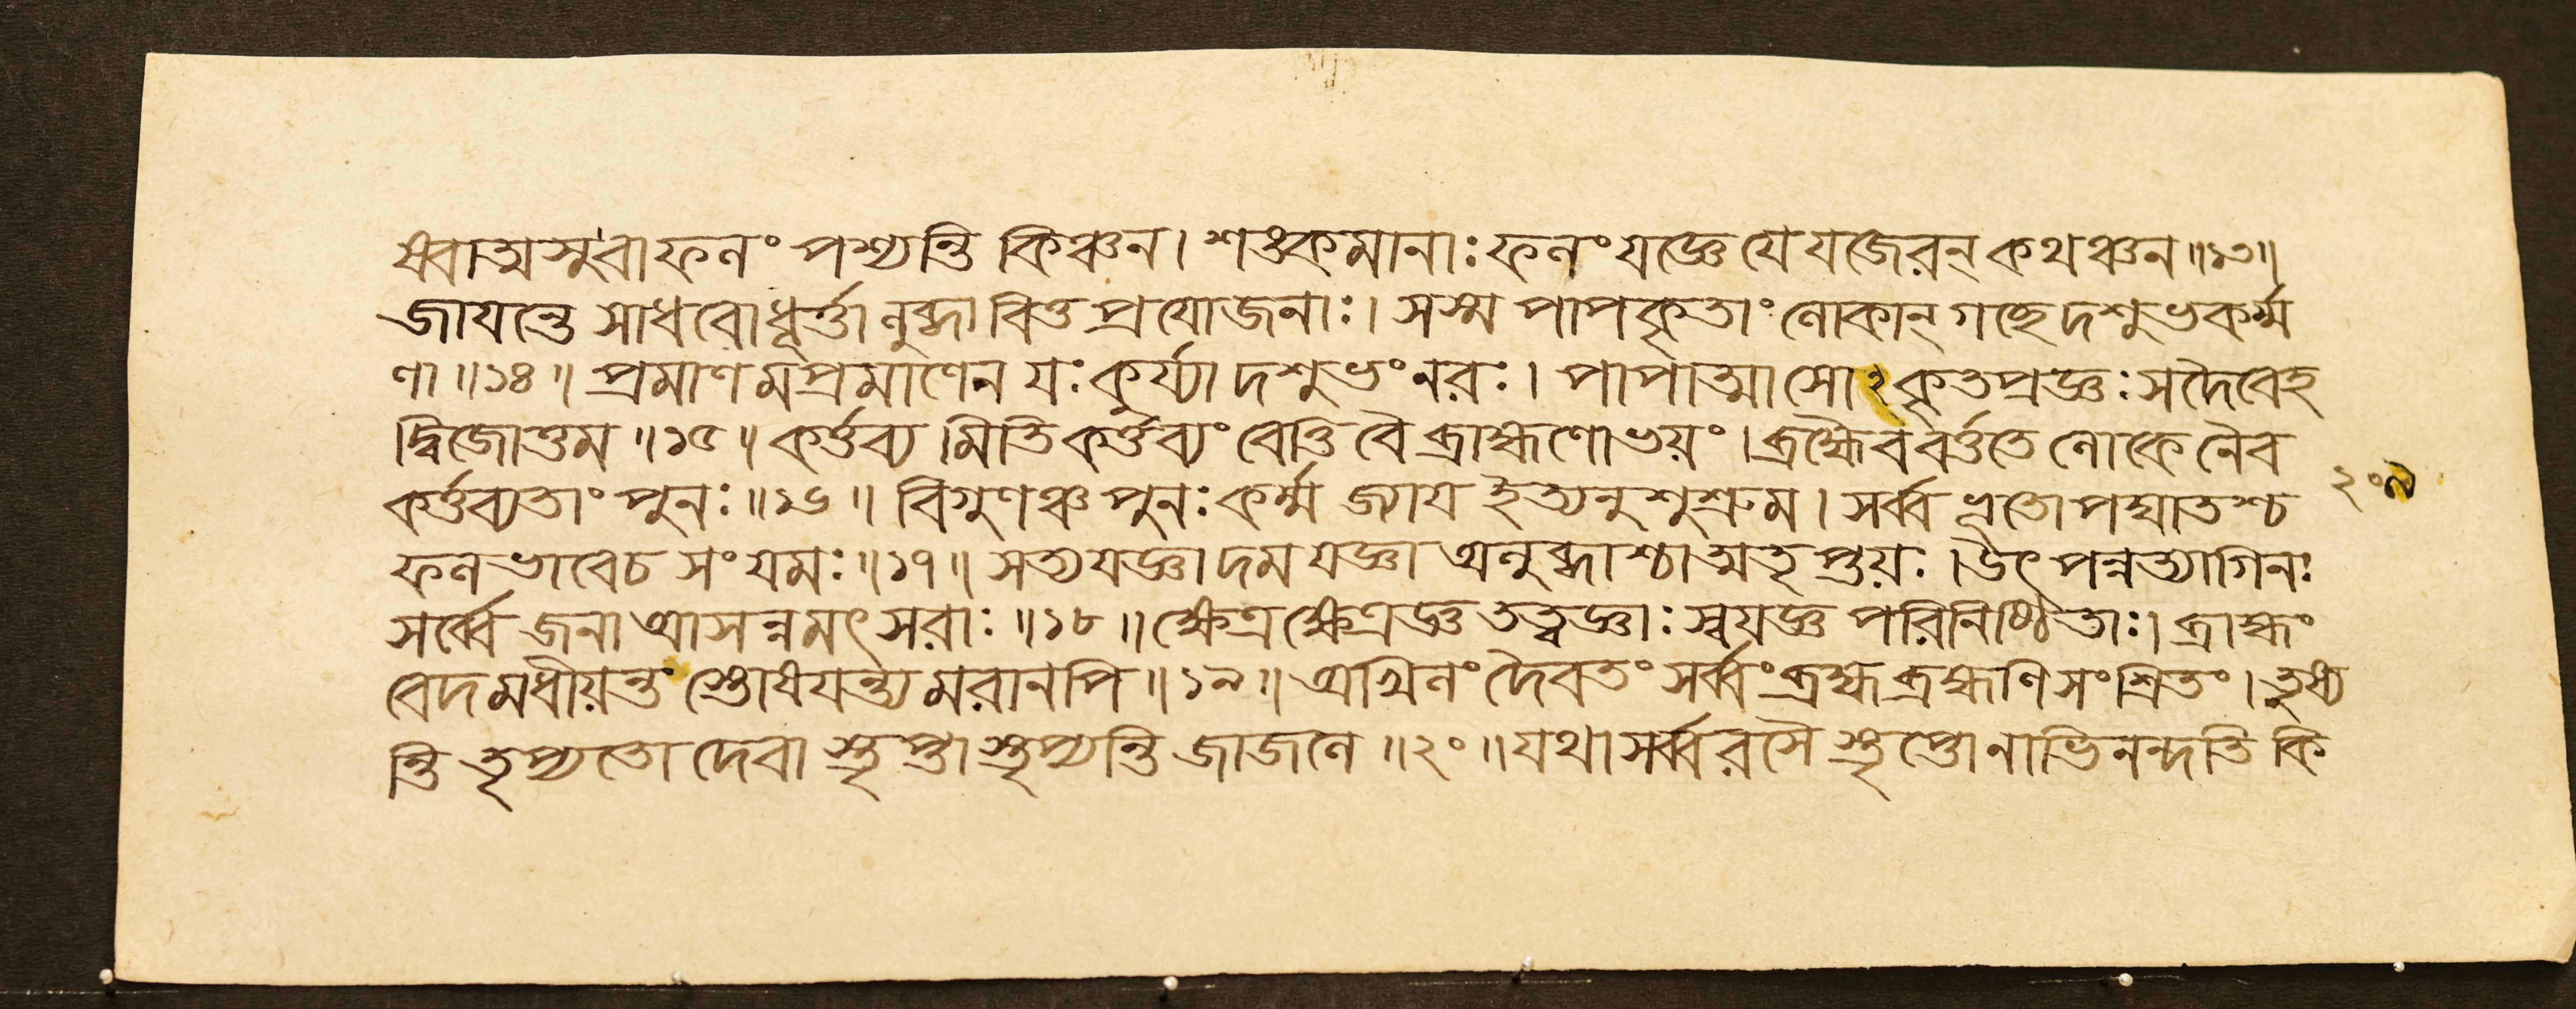 যেবাত্মসু বা ফলং পশ্যন্তি কিঞ্চন। শঙ্কমানাঃ ফলং যজ্ঞে যে যজেরন্ কথঞ্চন॥১৩॥
জাযন্তে সাধবোধূর্ত্তা লুব্ধা বিত্তপ্রযোজনাঃ। সস্ম পাপকৃতাং লোকান্ গচ্ছেদশুভকর্ম্ম
ণা॥১৪॥ প্রমাণমপ্রমাণেন যঃ কুর্য্যাদশুভং নরঃ। পাপাত্মা সোঽকৃতপ্রজ্ঞঃ সদৈবেহ
দ্বিজোত্তম॥১৫॥ কর্ত্তব্যমিতি কর্ত্তব্যং বেত্তি বৈ ব্রাহ্মণোভয়ং। ব্রহ্মৈব বর্ত্ততে লোকে নৈব
কর্ত্তব্যতাং পুনঃ॥১৬॥ বিগুণঞ্চ পুনঃ কর্ম্ম জ্যায ইত্যনুশুশ্রুম। সর্ব্বভূতোপঘাতশ্চ
ফলভাবেচ সংযমঃ॥১৭॥ সত্যযজ্ঞা দমযজ্ঞা অলুব্ধাশ্চাত্মতৃপ্তয়ঃ। উৎপন্নত্যাগিনঃ
সর্ব্বে জনা আসন্নমৎসরাঃ॥১৮॥ ক্ষেত্রক্ষেত্রজ্ঞতত্ত্বজ্ঞাঃ স্বযজ্ঞপরিনিষ্ঠিতাঃ। ব্রাহ্মং
বেদমধীয়ন্ত স্তোষযন্ত্যমরানপি॥১৯॥ অখিলং দৈবতং সর্ব্বং ব্রহ্ম ব্রহ্মণি সংশ্রিতং। তৃপ্য
ন্তি তৃপ্যতো দেবা স্তৃপ্তা স্তৃপ্যন্তি জাজলে॥২০॥ যথা সর্ব্বরসৈ স্তৃপ্তো নাভিনন্দতি কি
২০৯